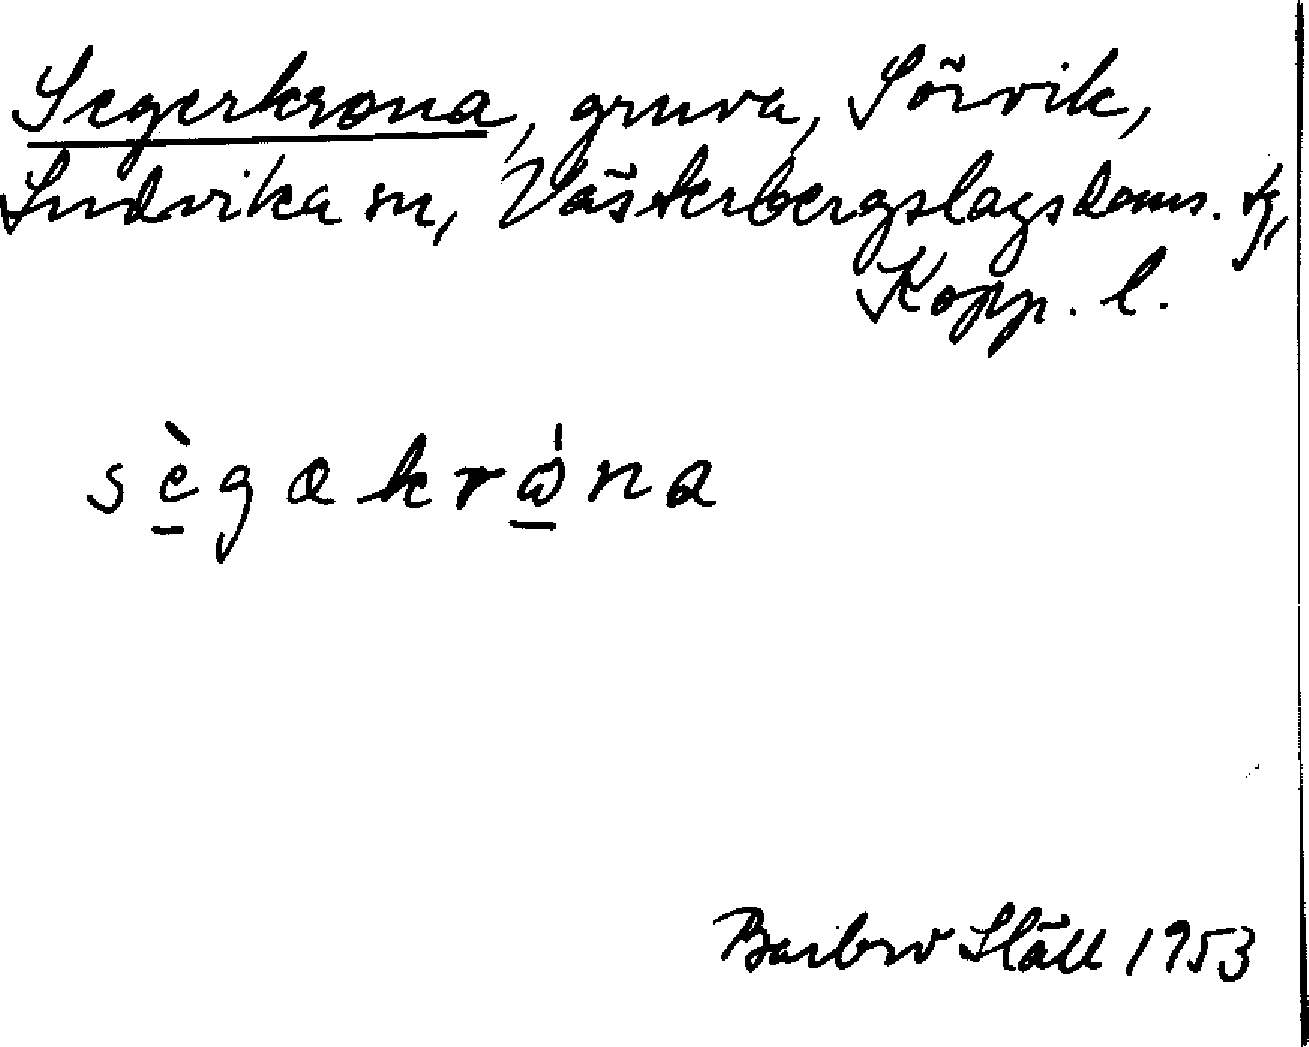 Segerkrona, gruva, Sörvik,
Ludvika sn, Västerbergslags doms. tg,
Kopp. l.
sègakrω̍na
Barbro Ståll 1953